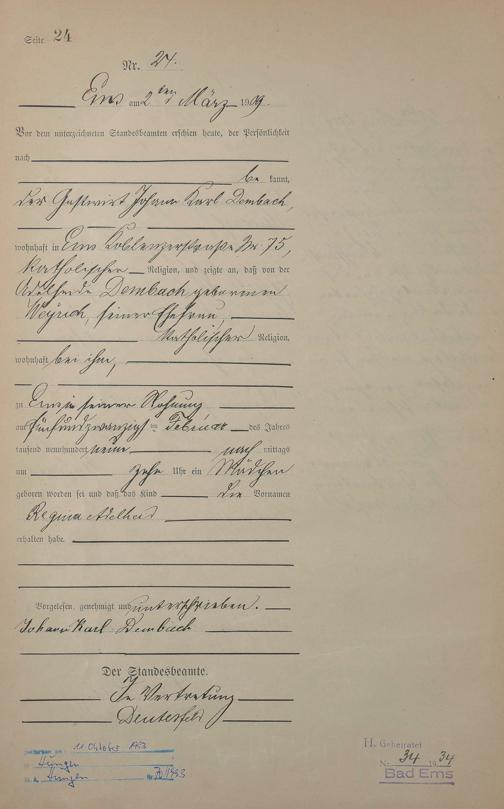 Seite 24
Nr. 24.
Ems am 2ten März 1909.
Vor dem unterzeichneten Standesbeamten erschien heute, der Persönlichkeit
nach
be kannt,
der Gastwirt Johann Karl Dembach,
wohnhaft in Ems Koblenzerstraße Nr. 75,
katholischer Religion, und zeigte an, daß von der
Adelheide Dembach geborenen
Weyrich, seiner Ehefrau,
katholischer Religion,
wohnhaft bei ihm,
zu Ems in seiner Wohnung
am fünfundzwanzigsten Februar des Jahres
tausend neunhundert neun nach mittags
um zehn Uhr ein Mädchen
geboren worden sei und daß das Kind die Vornamen
Regina Adelheid
erhalten habe.
Vorgelesen, genehmigt und unterschrieben.
Johann Karl Dembach
Der Standesbeamte.
In Vertretung
am 11. Oktober
H. Geheiratet
Nr. 34 1934
Bad Ems